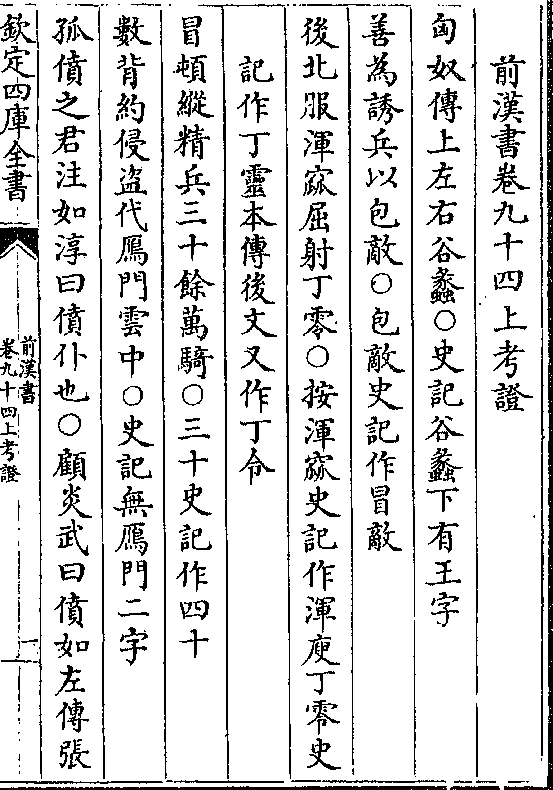 前漢書卷九十四上考證
匈奴傳上左右谷蠡○史記谷蠡下有王字
善為誘兵以包敵○包敵史記作冒敵
後北服渾窳屈射丁零○按渾窳史記作渾庾丁零史
記作丁靈本傳後文又作丁令
冒頓縱精兵三十餘萬騎○三十史記作四十
數背約侵盜代鴈門雲中○史記無鴈門二字
孤僨之君注如淳曰僨仆也○顧炎武曰僨如左傳張
欽定四庫全書
前漢書
卷九十四上考證
一